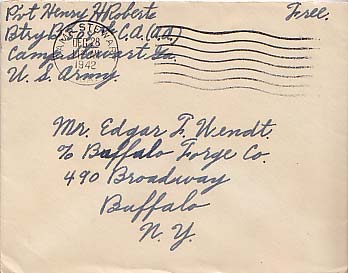 Pvt Henry H Roberts
Free.
Btry C.A.(A.A.)
Camp Stewart Ga.
U. S. Army.
DEC 28
1942
Mr. Edgar F. Wendt.
% Buffalo Forge Co.
490 Broadway
Buffalo
N. Y.